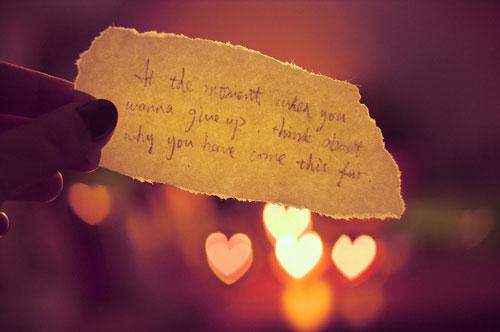 It the moment when you
wanna give up, think about
why you have come this far.